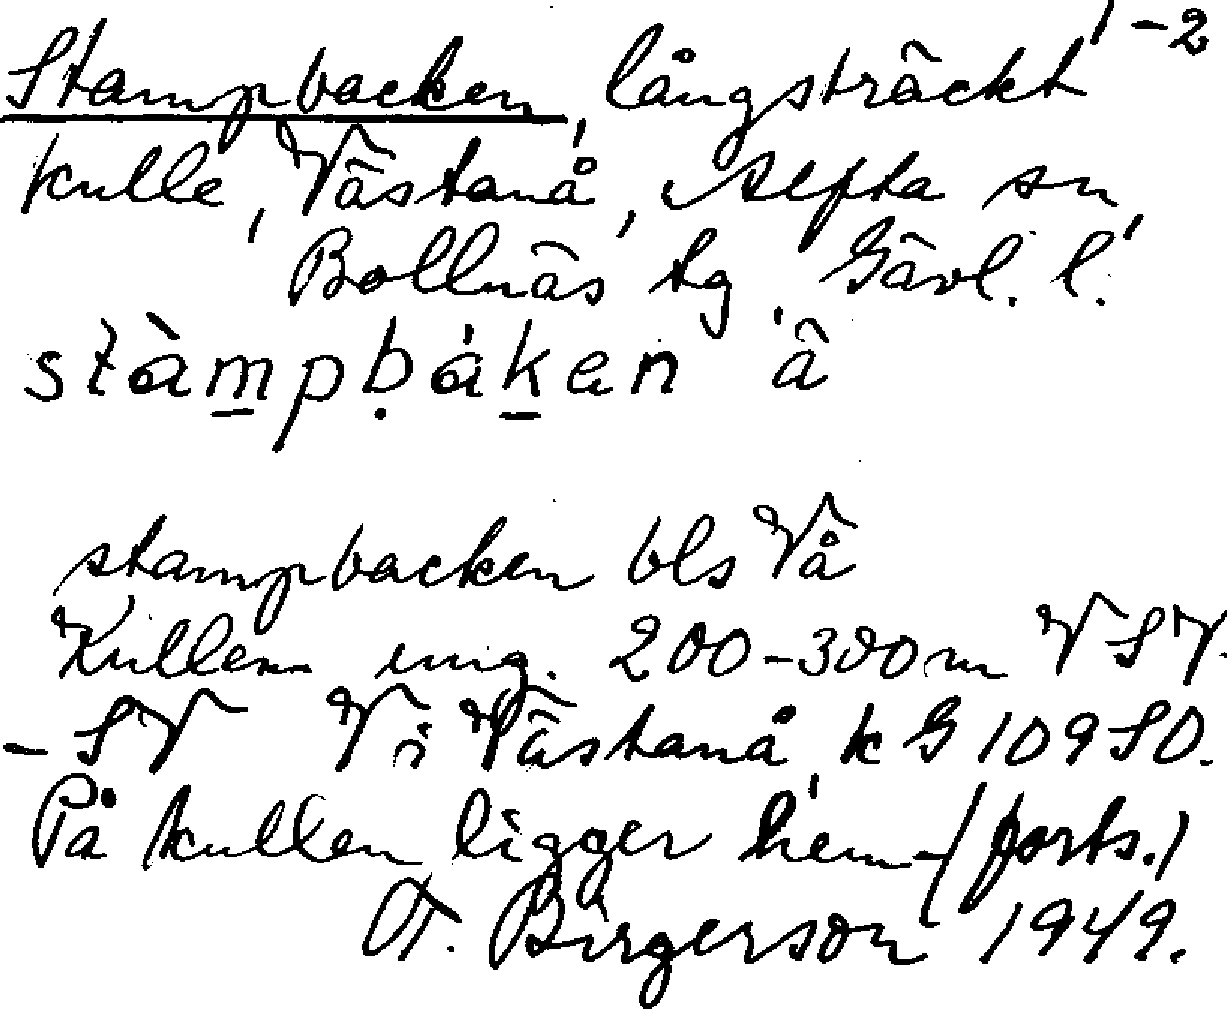 1-2
Stampbacken, långsträckt
kulle, Västanå, Alfta sn,
Bollnäs tg, Gävl. l.
stàmpḅáken â
stampbacken bls Vå
Kullen ung. 200-300 m VSV.
- SV V i Västanå, k G 109 SO.
På kullen ligger hem- (forts.)
T. Birgerson 1949.